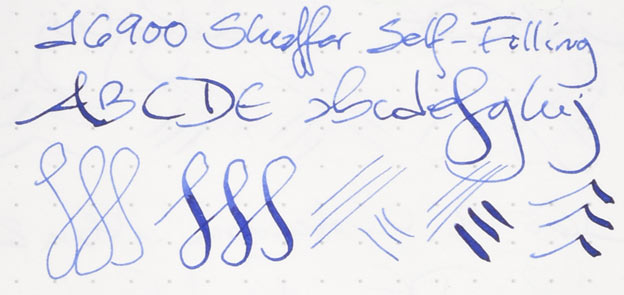 16900 Sheaffer Self-Filling
ABCDE abcdefghij